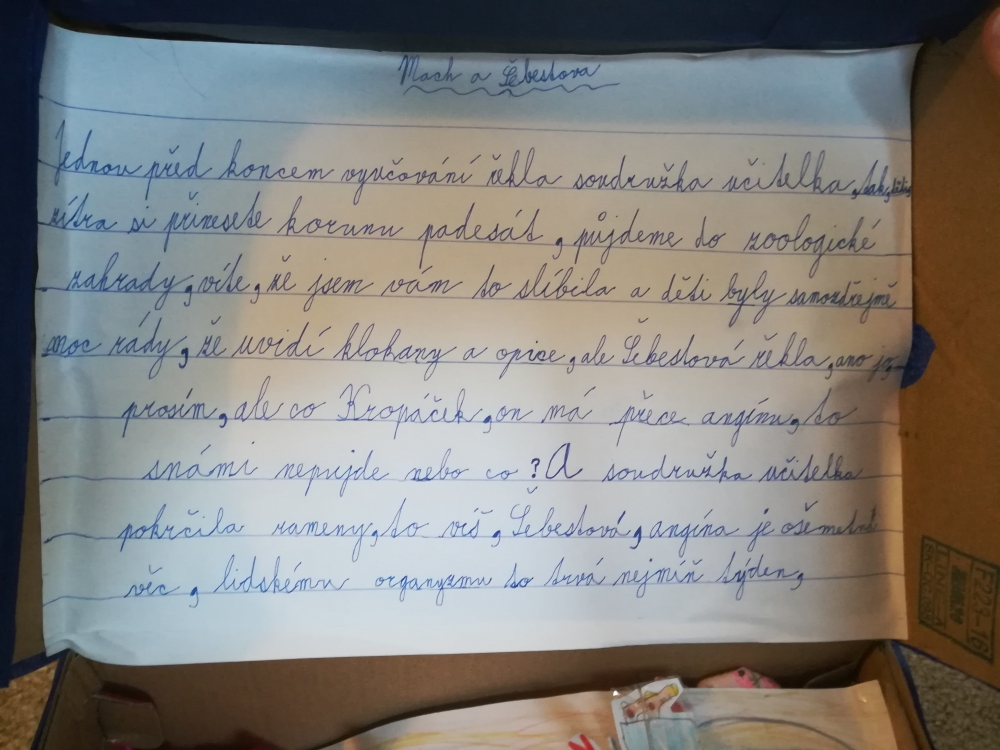 Mach a Šebestova
Jednou před koncem vyučování řekla soudružka učitelka, tak, děti,
zítra si přinesete korunu padesát, půjdeme do zoologické
zahrady, víte, že jsem vám to slíbila a děti byly samozdřejmě
moc rády, že uvidí klokany a opice, ale Šebestová řekla, ano jo,
prosím, ale co Kropáček, on má přece angínu, to
snámi nepujde nebo co? A soudružka učitelka
pokrčila rameny, to víš, Šebestová, angína je ošemetná
věc, lidskému organyzmu to trvá nejmíň týden,
F223-16